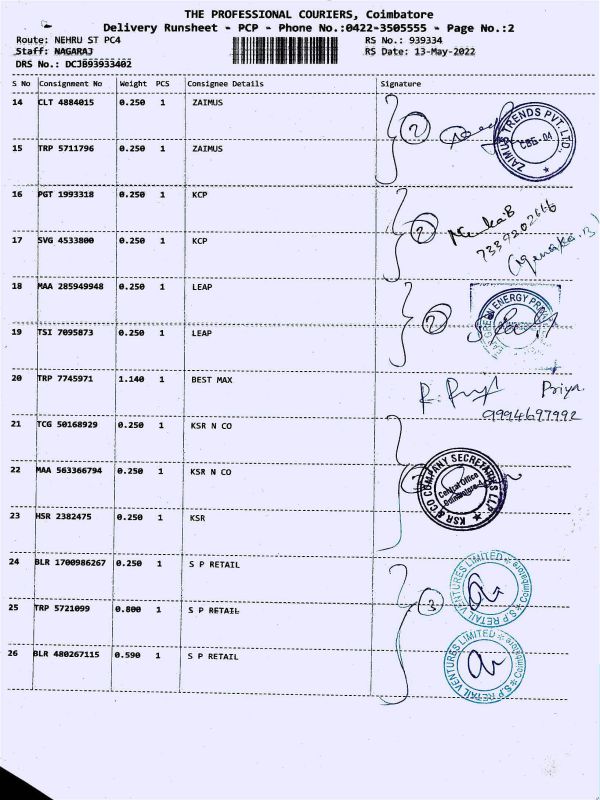 THE PROFESSIONAL COURIERS, Coimbatore
Delivery Runsheet - PCP - Phone No.:0422-3505555 - Page No.:2
Route: NEHRU ST PC4 RS No.: 939334
Staff: NAGARAJ RS Date: 13-May-2022
DRS No.: DCJB93933402
S No Consignment No Weight PCS Consignee Details Signature
14 CLT 4884015 0.250 1 ZAIMUS
2
ZAIMUS TRENDS PVT.LTD. CBE-04
15 TRP 5711796 0.250 1 ZAIMUS
16 PGT 1993318 0.250 1 KCP
2
7339202666
17 SVG 4533800 0.250 1 KCP
18 MAA 285949948 0.250 1 LEAP
2
GREEN ENERGY
19 TSI 7095873 0.250 1 LEAP
20 TRP 7745971 1.140 1 BEST MAX
Priya.
9994697992
21 TCG 50168929 0.250 1 KSR N CO
22 MAA 563366794 0.250 1 KSR N CO
KSR & CO COMPANY SECRETARIES LLP Central Office Coimbatore
23 HSR 2382475 0.250 1 KSR
24 BLR 1700986267 0.250 1 S P RETAIL
S.P RETAIL VENTURES LIMITED Coimbatore
25 TRP 5721099 0.800 1 S P RETAIL
3
26 BLR 480267115 0.590 1 S P RETAIL
S.P RETAIL VENTURES LIMITED Coimbatore